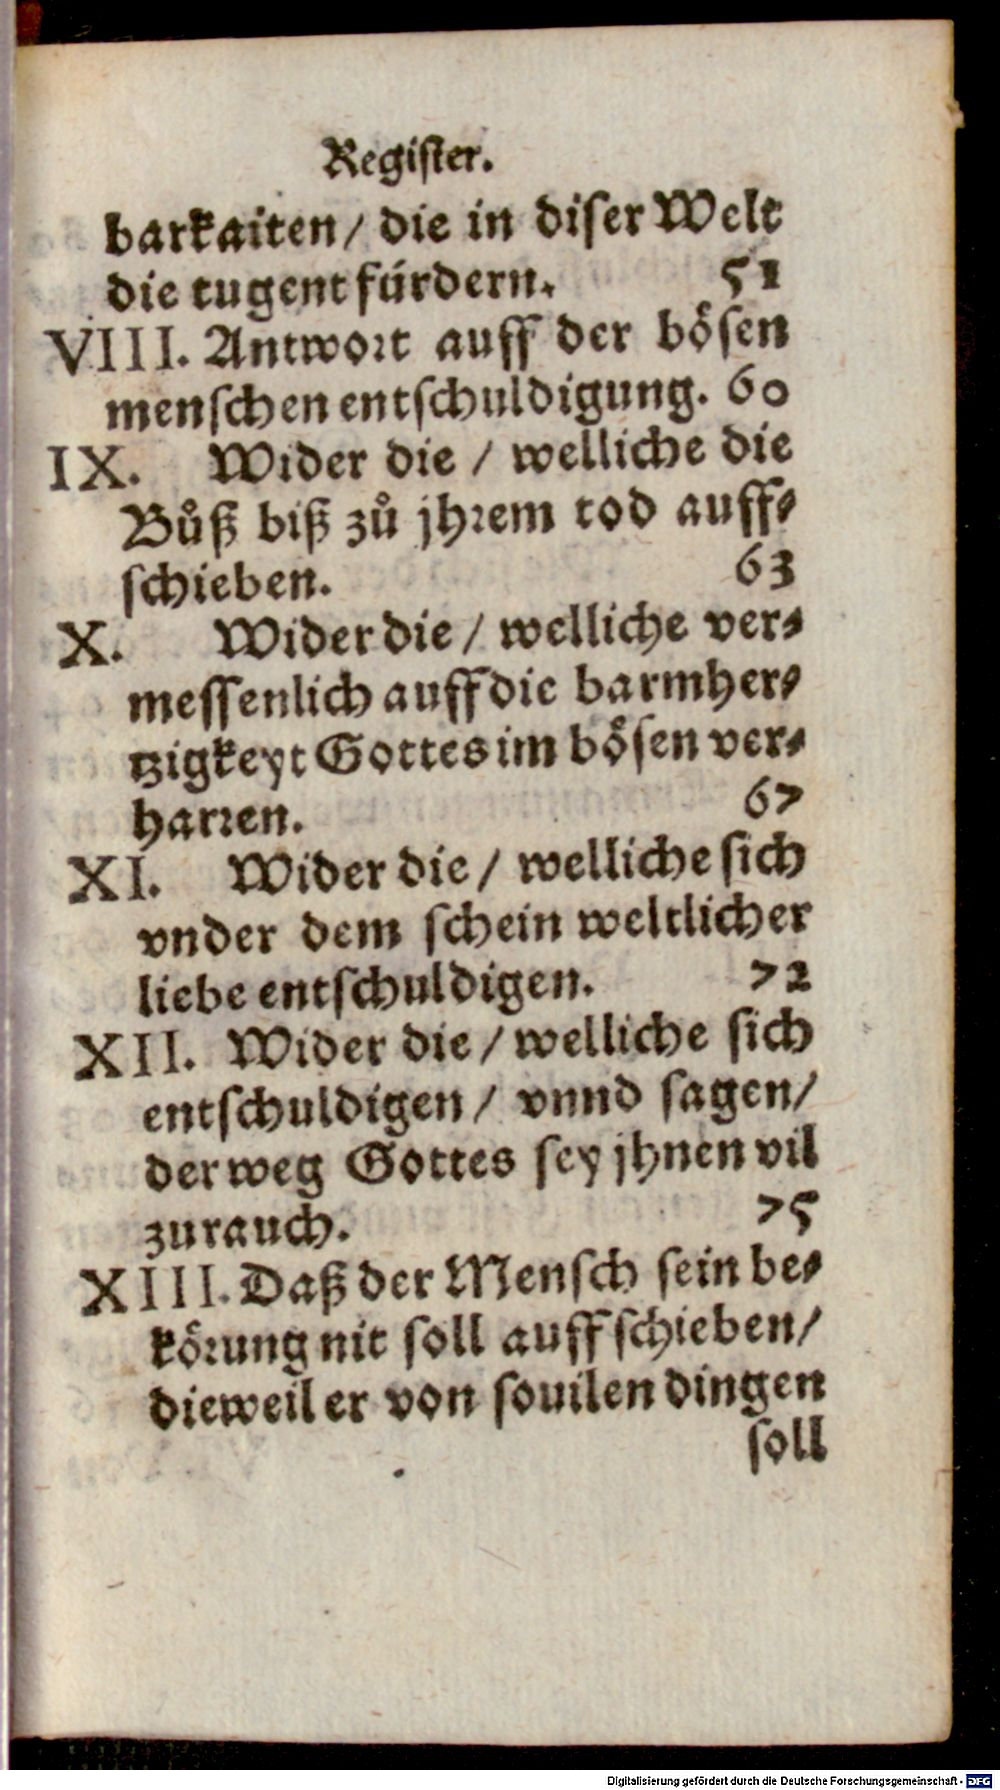 Register.
barkaiten/ die in diser Welt
die tugent fürdern. 51
VIII. Antwort auff der bösen
menschen entschuldigung. 60
IX. Wider die / welliche die
Bůß biß zů jhrem tod auff⸗
schieben. 63
X. Wider die / welliche ver⸗
messenlich auff die barmher⸗
tzigkeyt Gottes im bösen ver⸗
harren. 67
XI. Wider die / welliche sich
vnder dem schein weltlicher
liebe entschuldigen. 72
XII. Wider die / welliche sich
entschuldigen / vnnd sagen/
der weg Gottes sey jhnen vil
zu rauch. 75
XIII. Daß der Mensch sein be⸗
körung nit soll auffschieben/
dieweil er von souilen dingen
soll
Digitalisierung gefördert durch die Deutsche Forschungsgemeinschaft - DFG